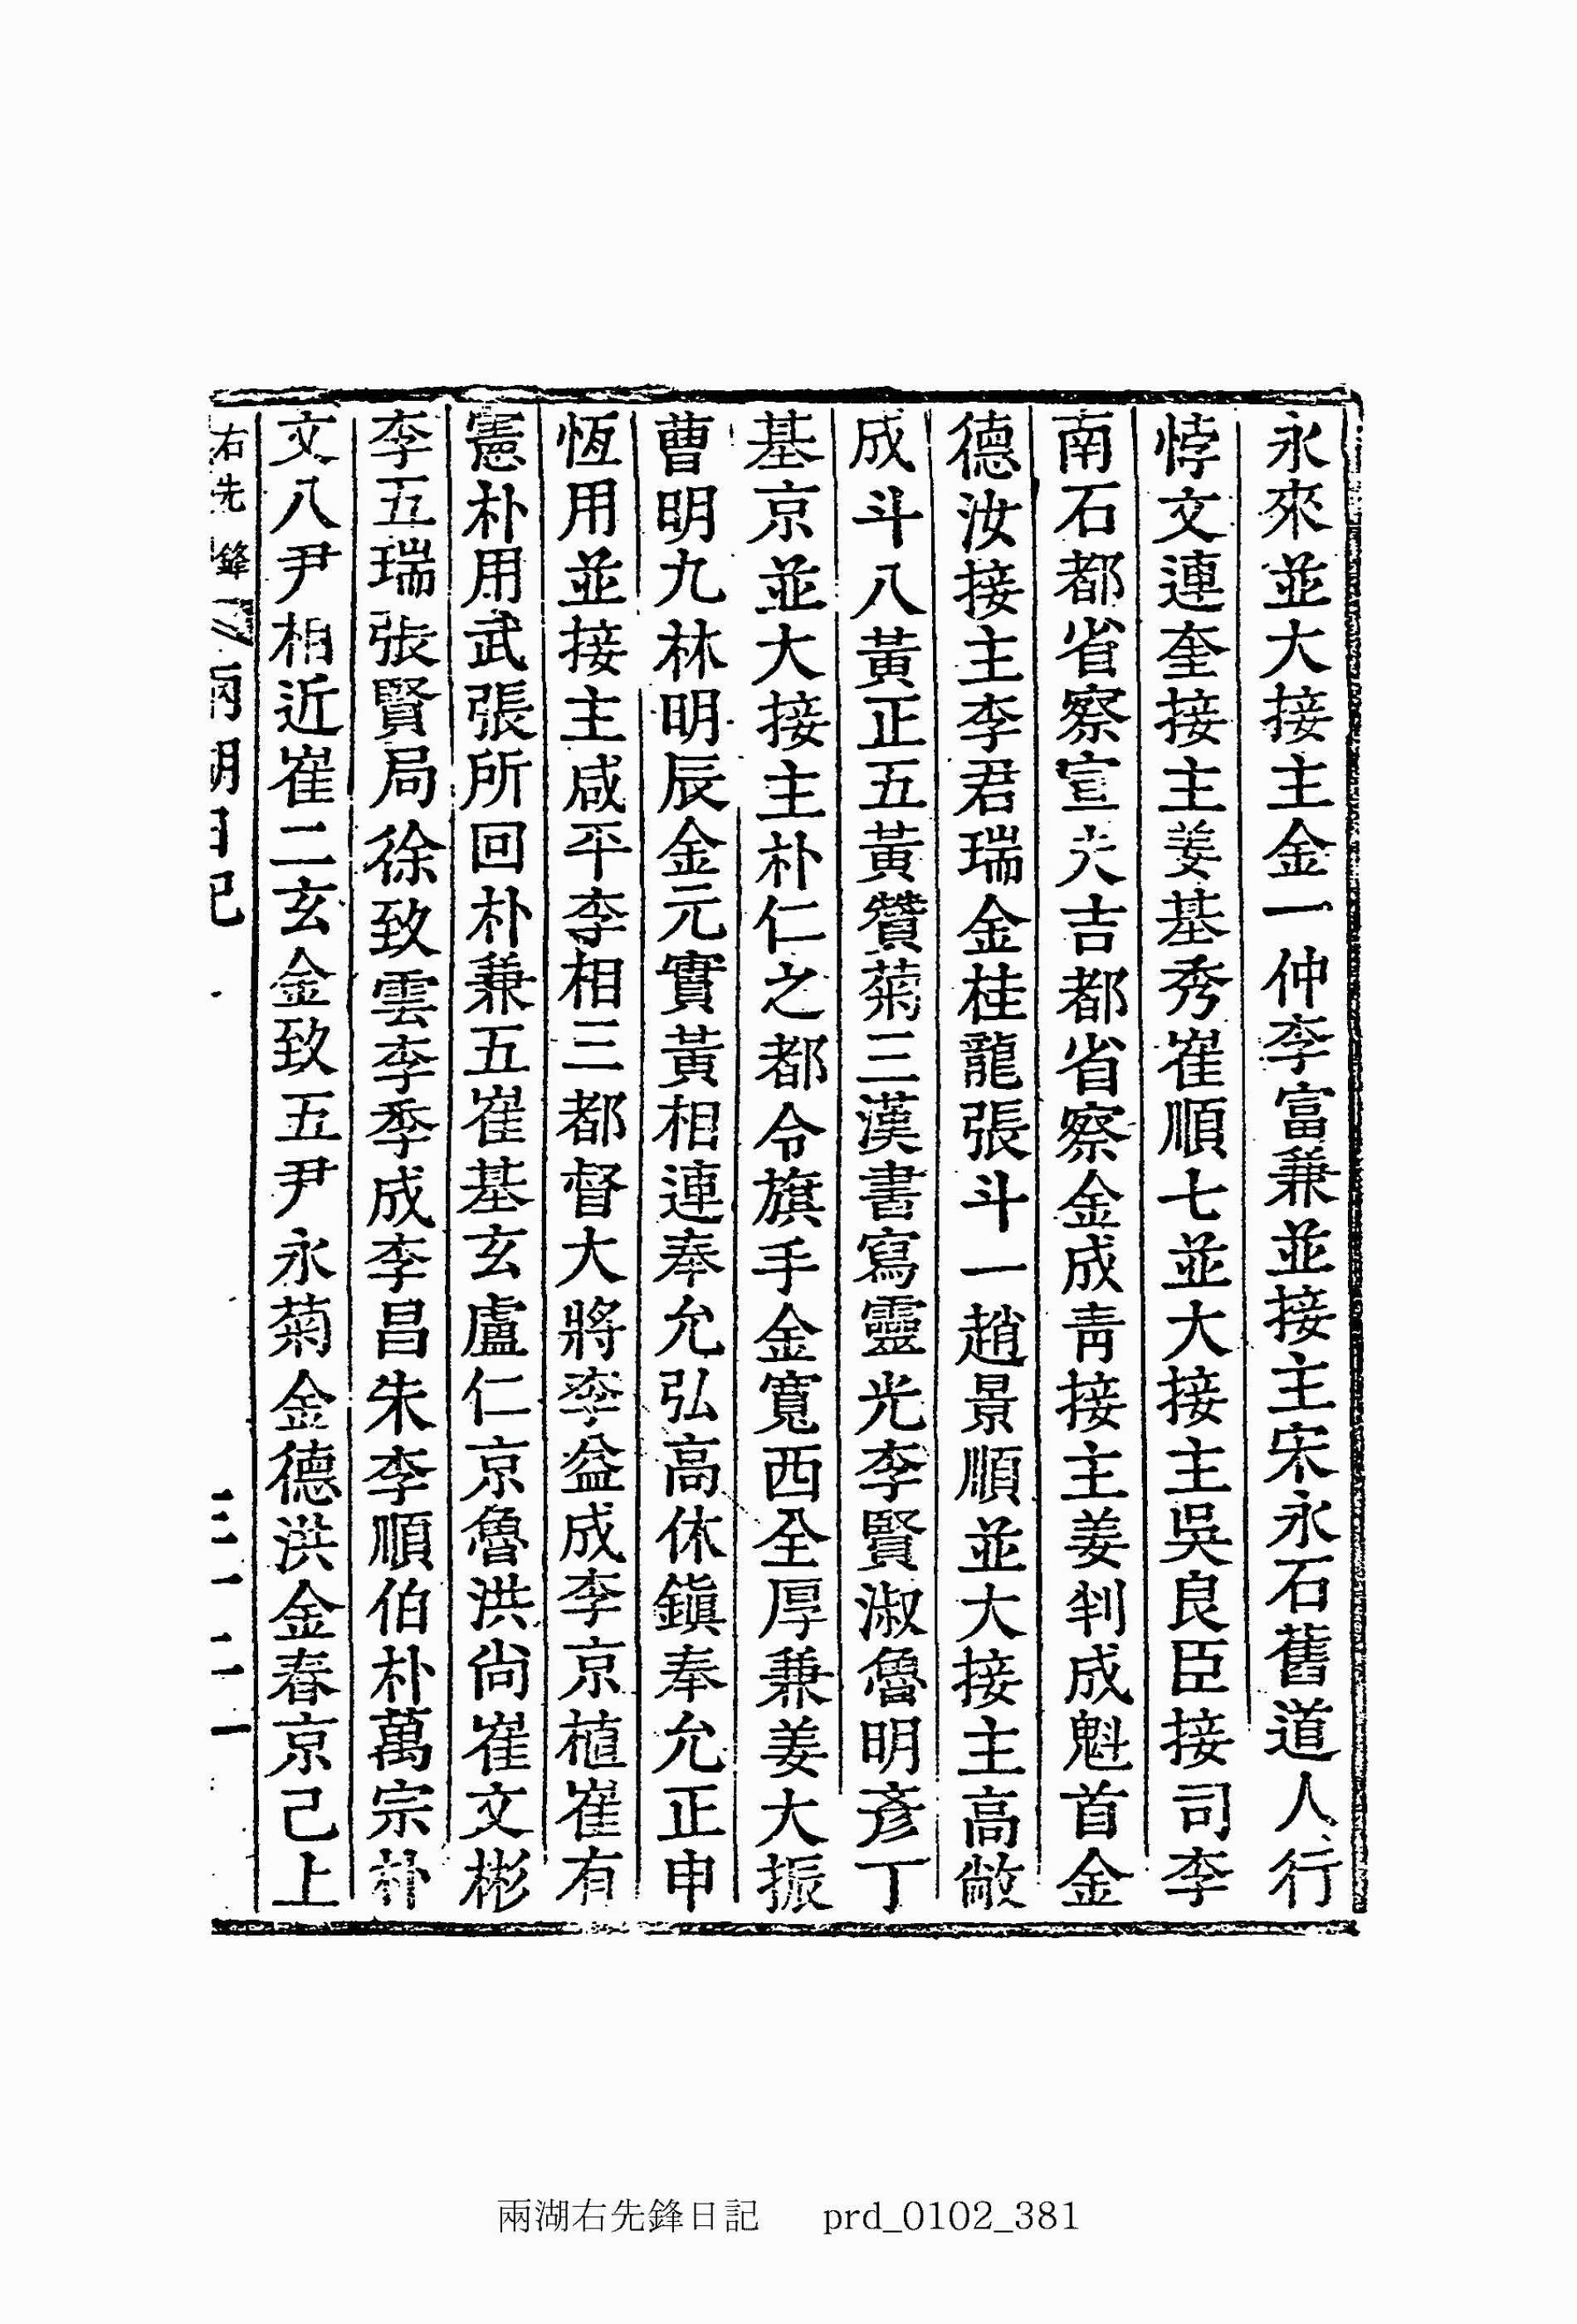 永來並大接主金一仲李富兼並接主宋永石舊道人行
悖文連奎接主姜基秀崔順七並大接主吳良臣接司李
南石都省察宣夫吉都省察金成靑接主姜判成魁首金
德汝接主李君瑞金桂龍張斗一趙景順並大接主高敞
成斗八黃正五黃贊菊三漢書寫靈光李賢淑魯明彥丁
基京並大接主朴仁之都令旗手金寬西全厚兼姜大振
曹明九林明辰金元實黃相連奉允弘高休鎭奉允正申
恆用並接主咸平李相三都督大將李益成李京植崔有
憲朴用武張所回朴兼五崔基玄盧仁京魯洪尙崔文彬
李五瑞張賢局徐致雲李季成李昌朱李順伯朴萬宗朴
文八尹相近崔二玄金致五尹永菊金德洪金春京己上
右先鋒 兩湖日記
兩湖右先鋒日記 prd_0102_381